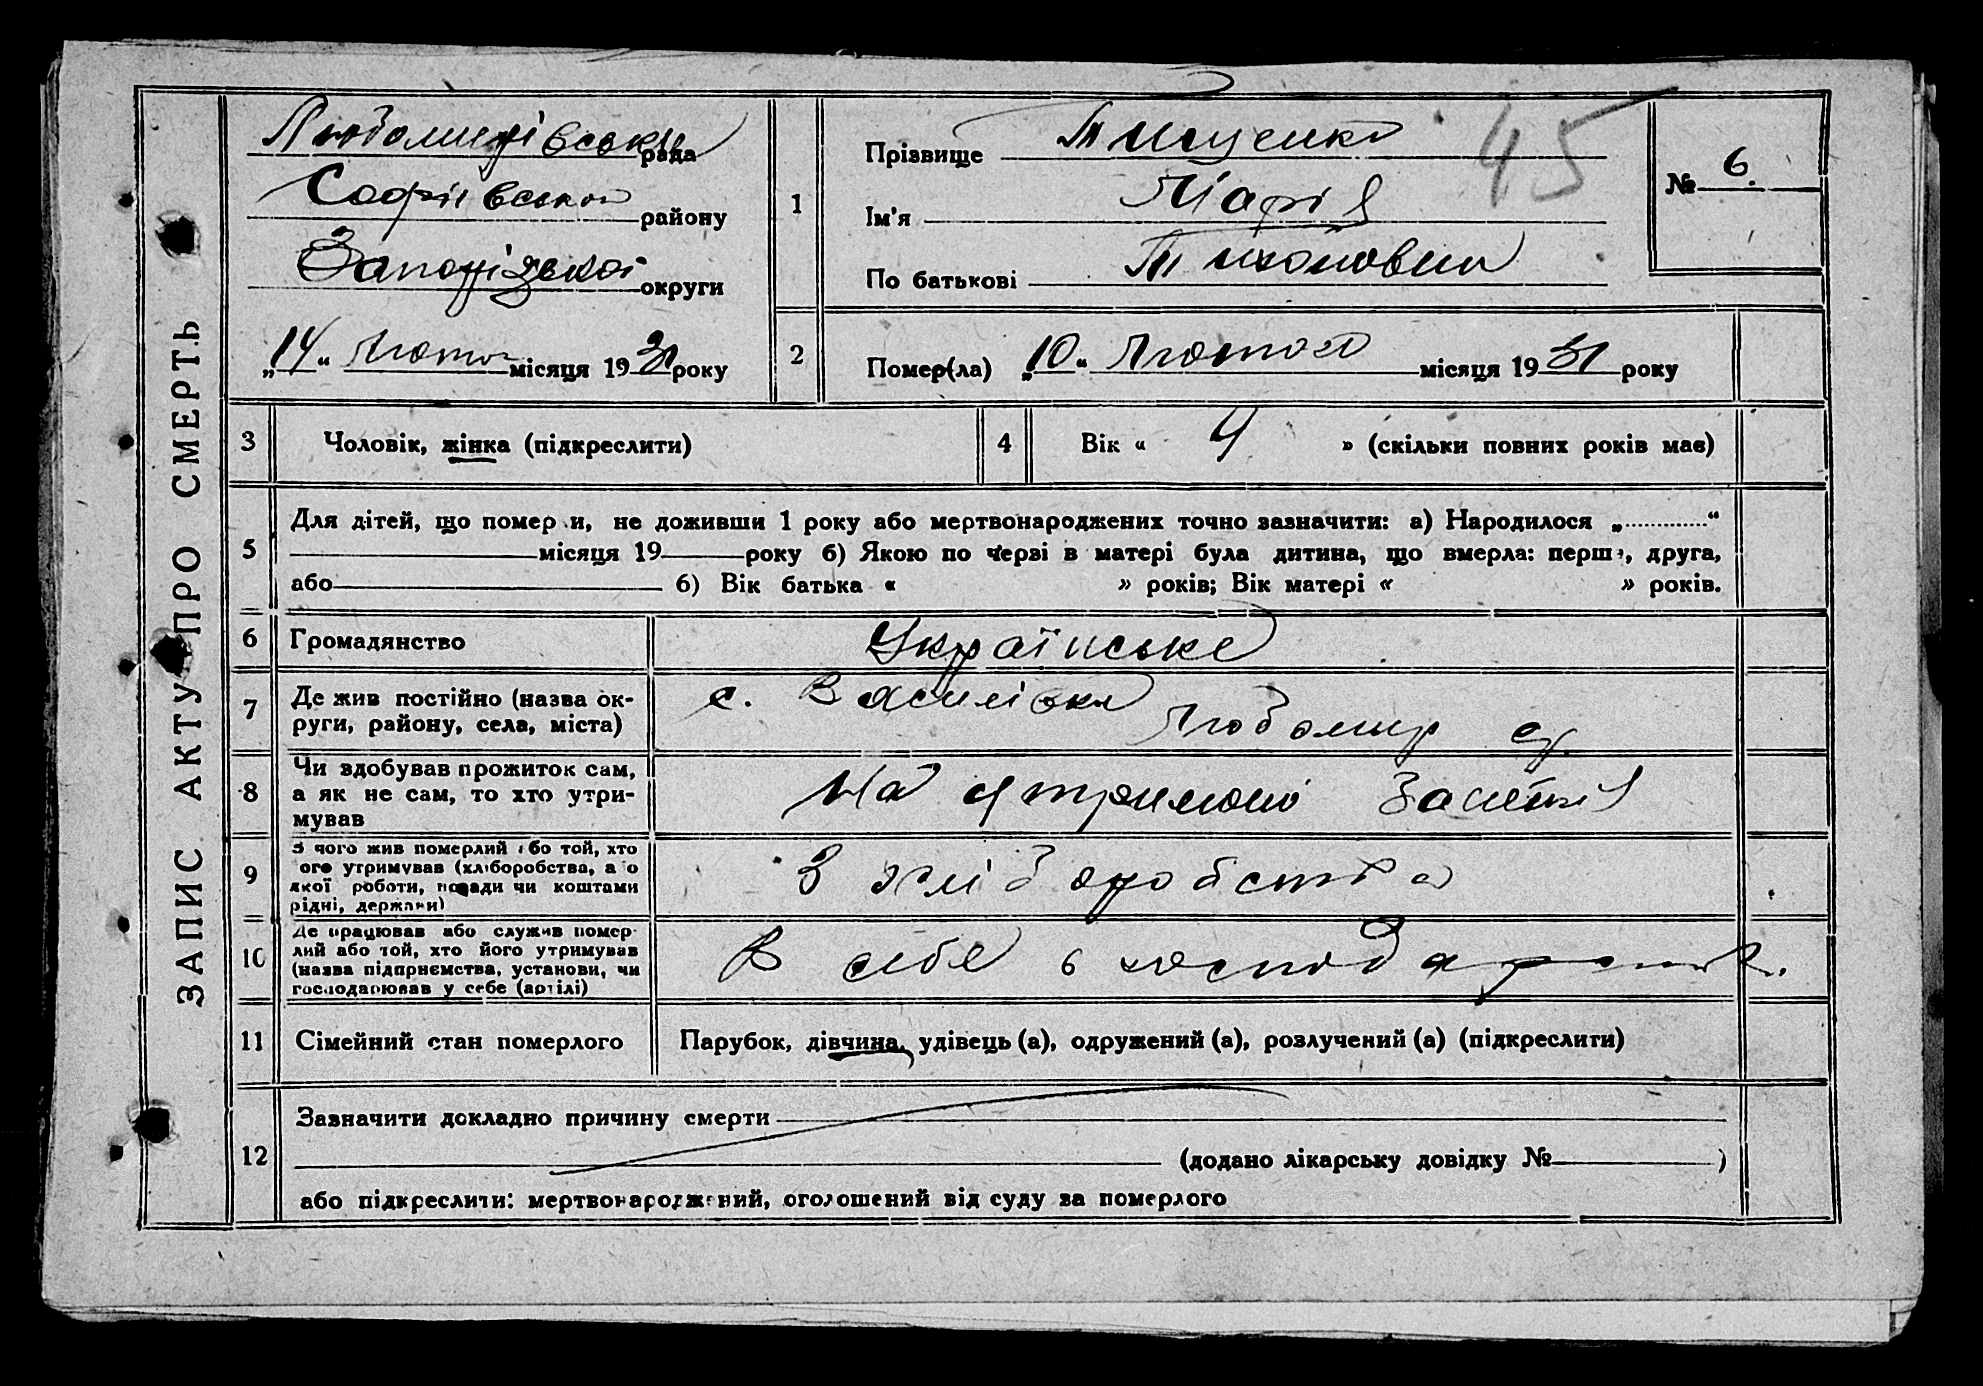 ЗАПИС АКТУ ПРО СМЕРТЬ
Любомирівська рада
Софіївського району
Запорізької округи
„14“ лютого місяця 1931 року
1
Прізвище Тищенко
Ім'я Марія
По батькові Тихоновна
45
№ 6.
2
Помер(ла) „10“ Лютого місяця 1931 року
3 Чоловік, жінка (підкреслити)
4 Вік « 4 » (скільки повних років має)
5 Для дітей, що померли, не доживши 1 року або мертвонароджених точно зазначити: а) Народилося „............“
місяця 19 року б) Якою по черві в матері була дитина, що вмерла: перша, друга,
або б) Вік батька « » років; Вік матері « » років.
6 Громадянство Українське
7 Де жив постійно (назва ок-
руги, району, села, міста)
с. Василівка
Любомир с/р.
8 Чи здобував прожиток сам,
а як не сам, то хто утри-
мував
На утриманні
9 З чого жив померлий або той, хто
його утримував (хліборобства, або
якої роботи, поради чи коштами
рідні, держави)
З хліборобства
10 Де працював або служив помер-
лий або той, хто його утримував
(назва підприємства, установи, чи
господарював у себе (артілі)
В себе в господарстві.
11 Сімейний стан померлого Парубок, дівчина, удівець (а), одружений (а), розлучений (а) (підкреслити)
12 Зазначити докладно причину смерти
(додано лікарську довідку № )
або підкреслити: мертвонароджений, оголошений від суду за померлого